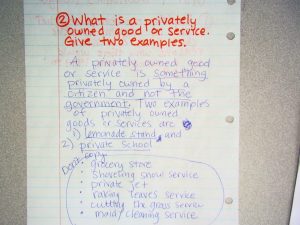 ② What is a privately
owned good or service.
Give two examples.
A privately owned good
or service is something
privately owned by a
citizen and not the
government. Two examples
of privately owned
goods or services are
1) lemonade stand and
2) private school
Don't copy
• grocery store
• shoveling snow service
• private jet
• raking leaves service
• cutting the grass service
• maid/cleaning service